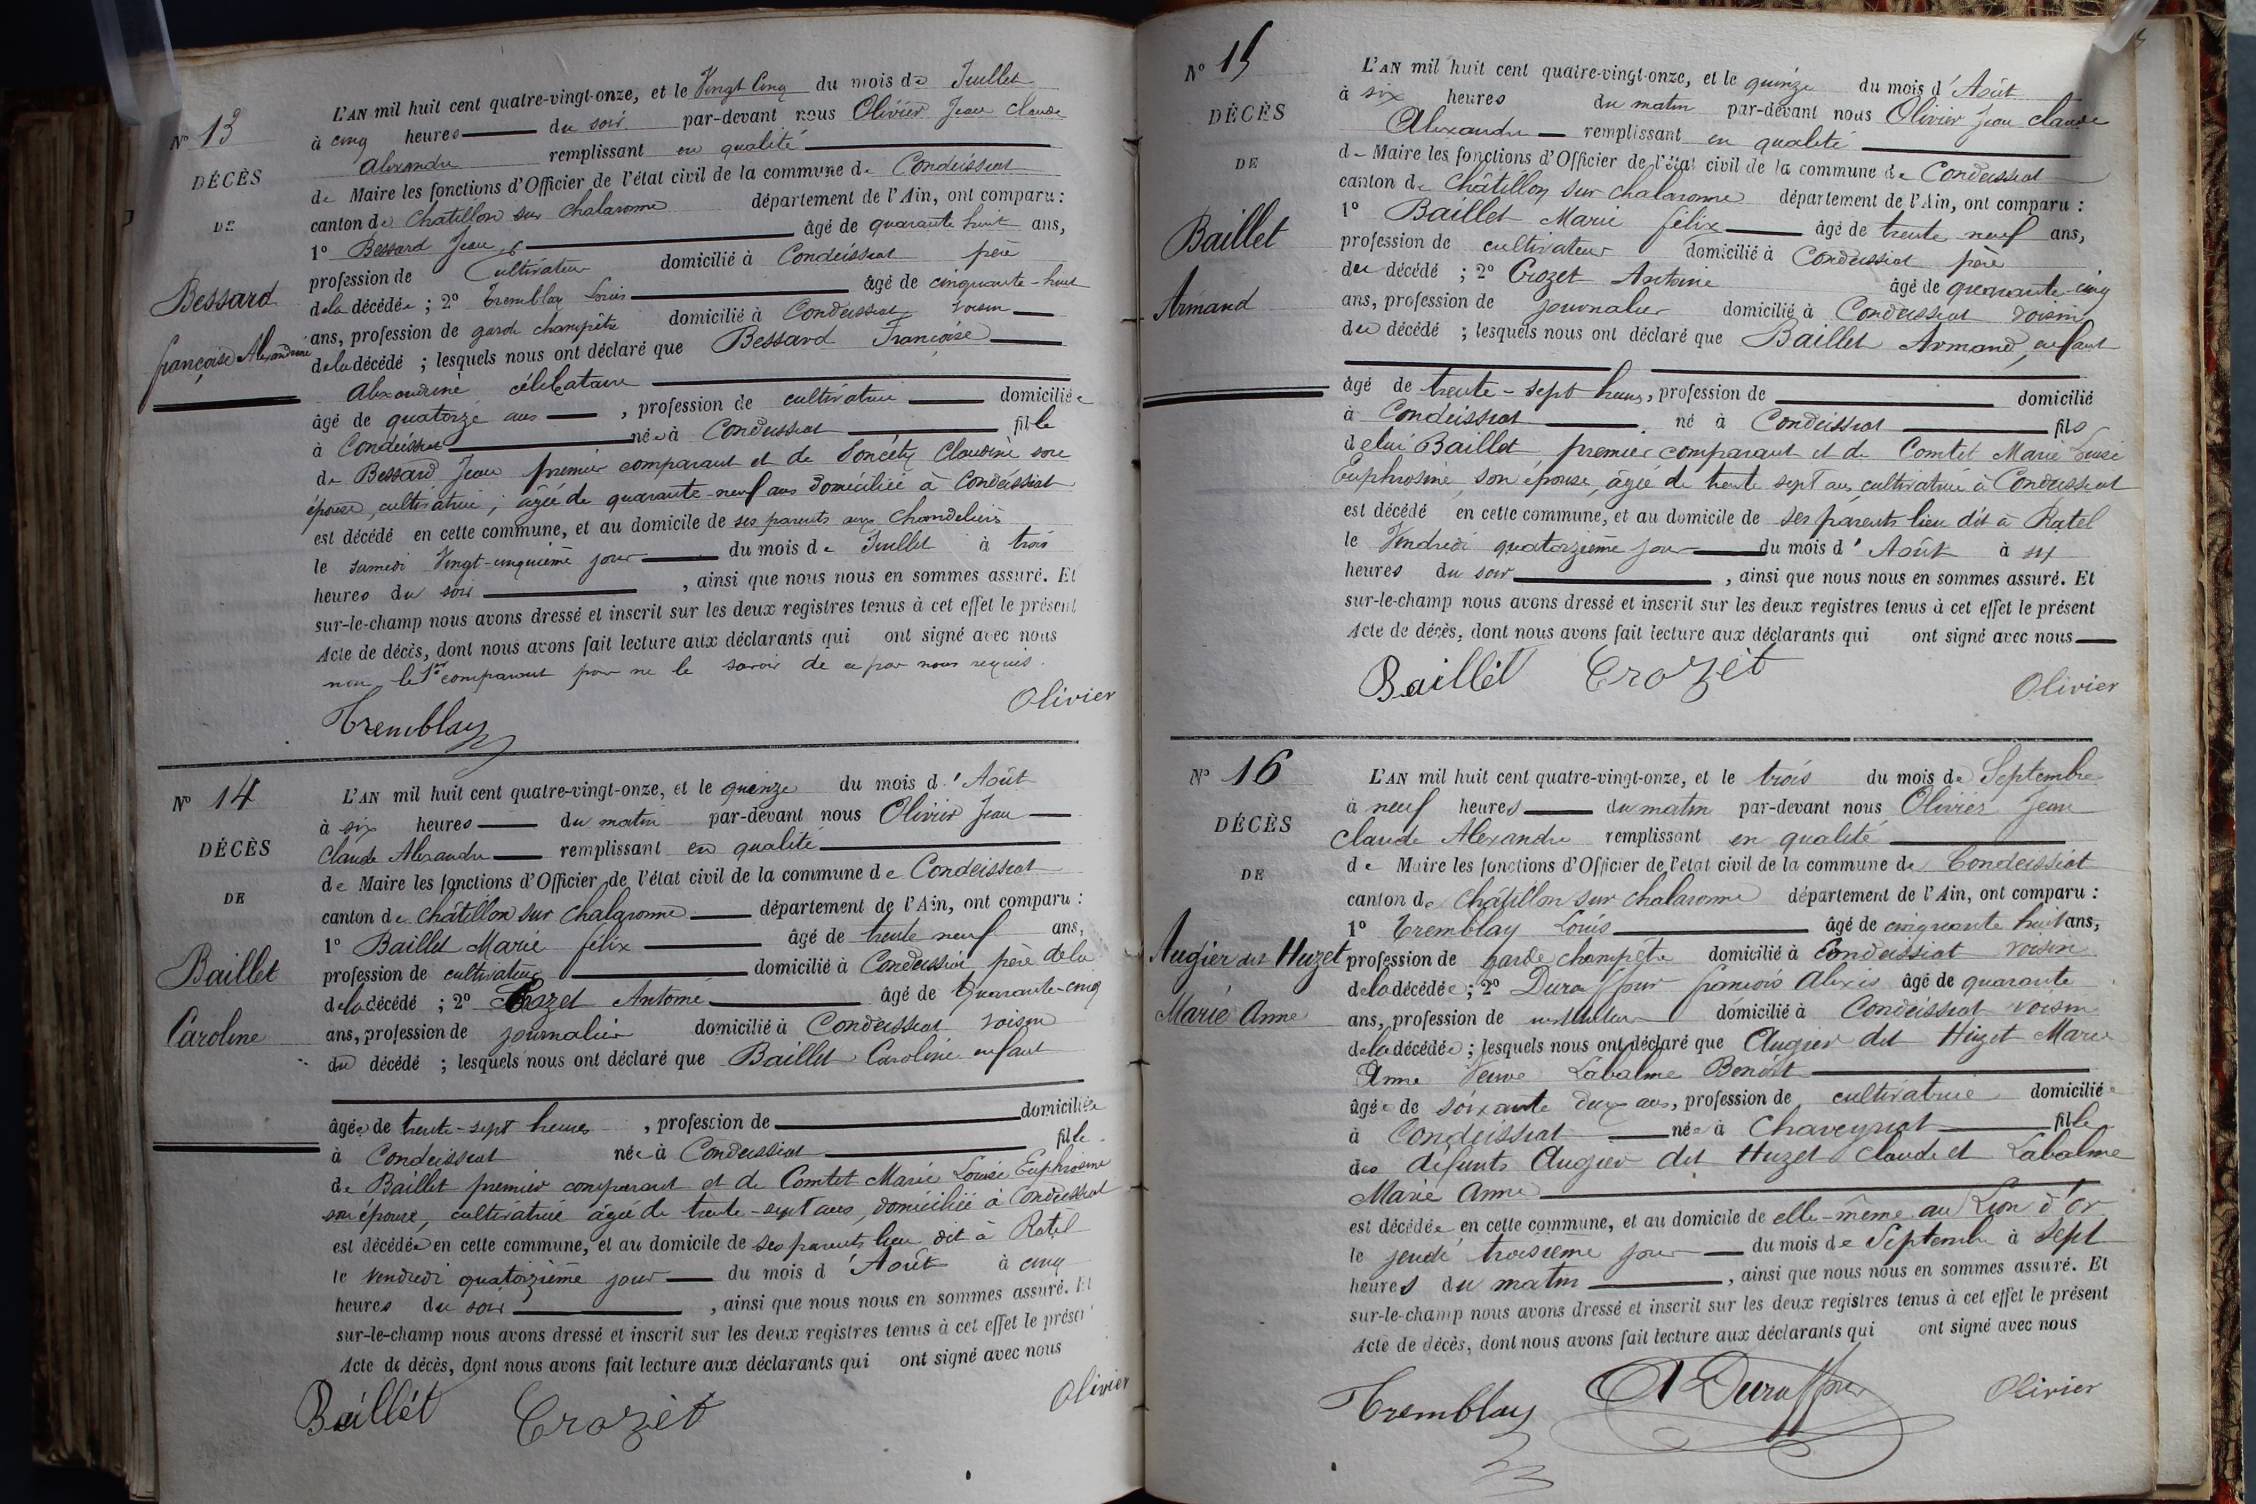 N° 13
DÉCÈS
DE
Bessard
françoise Alexandrine
L'AN mil huit cent quatre-vingt-onze, et le Vingt Cinq du mois de Juillet
à cinq heures du soir par-devant nous Olivier Jean Claude
Alexandre remplissant en qualité
de Maire les fonctions d'Officier de l'état civil de la commune de Condeissiat
canton de Chatillon sur Chalaronne département de l'Ain, ont comparu :
1° Bessard Jean âgé de quarante huit ans,
profession de Cultivateur domicilié à Condeissiat père
de la décédée ; 2° Tremblay Louis âgé de cinquante-huit
ans, profession de garde champêtre domicilié à Condeissiat voisin
de la décédé ; lesquels nous ont déclaré que Bessard Françoise
Alexandrine célibataire
âgé de quatorze ans , profession de cultivatrice domiciliée
à Condeissiat née à Condeissiat fille
de Bessard Jean premier comparant et de Claudine son
épouse, cultivatrice, âgée de quarante-neuf ans domiciliée à Condeissiat
est décédé en cette commune, et au domicile de ses parents aux Chandeliers
le samedi Vingt-cinquième jour du mois de Juillet à trois
heures du soir , ainsi que nous nous en sommes assuré. Et
sur-le-champ nous avons dressé et inscrit sur les deux registres tenus à cet effet le présent
Acte de décès, dont nous avons fait lecture aux déclarants qui ont signé avec nous
non le 1er comparant pour ne le savoir de ce par nous requis.
Tremblay Olivier
N° 14
DÉCÈS
DE
Baillet
Caroline
L'AN mil huit cent quatre-vingt-onze, et le quinze du mois d'Août
à six heures du matin par-devant nous Olivier Jean
Claude Alexandre remplissant en qualité
de Maire les fonctions d'Officier de l'état civil de la commune de Condeissiat
canton de Châtillon sur Chalaronne département de l'Ain, ont comparu :
1° Baillet Marie félix âgé de trente neuf ans,
profession de cultivateur domicilié à Condeissiat père de la
de la décédé ; 2° Crozet Antoine âgé de Quarante-cinq
ans, profession de journalier domicilié à Condeissiat voisin
du décédé ; lesquels nous ont déclaré que Baillet Caroline enfant
âgée de trente-sept heures , profession de domiciliée
à Condeissiat née à Condeissiat fille
de Baillet premier comparant et de Comtet Marie Louise Euphrosine
son épouse, cultivatrice âgée de trente-sept ans, domiciliée à Condeissiat
est décédée en cette commune, et au domicile de ses parents lieu dit à Ratel
le vendredi quatorzième jour du mois d'Août à cinq
heures du soir , ainsi que nous nous en sommes assuré. Et
sur-le-champ nous avons dressé et inscrit sur les deux registres tenus à cet effet le présent
Acte de décès, dont nous avons fait lecture aux déclarants qui ont signé avec nous
Baillet Crozet Olivier
N° 15
DÉCÈS
DE
Baillet
Armand
L'AN mil huit cent quatre-vingt-onze, et le quinze du mois d'Août
à six heures du matin par-devant nous Olivier Jean Claude
Alexandre remplissant en qualité
de Maire les fonctions d'Officier de l'état civil de la commune de Condeissiat
canton de Châtillon sur Chalaronne département de l'Ain, ont comparu :
1° Baillet Marie félix âgé de trente neuf ans,
profession de cultivateur domicilié à Condeissiat père
du décédé ; 2° Crozet Antoine âgé de quarante-cinq
ans, profession de journalier domicilié à Condeissiat voisin
du décédé ; lesquels nous ont déclaré que Baillet Armand, enfant
âgé de trente-sept heures, profession de domicilié
à Condeissiat né à Condeissiat fils
de lui Baillet premier comparant et de Comtet Marie Louise
Euphrosine, son épouse, âgée de trente sept ans, cultivatrice à Condeissiat
est décédé en cette commune, et au domicile de ses parents lieu dit à Ratel
le Vendredi quatorzième jour du mois d'Août à six
heures du soir , ainsi que nous nous en sommes assuré. Et
sur-le-champ nous avons dressé et inscrit sur les deux registres tenus à cet effet le présent
Acte de décès, dont nous avons fait lecture aux déclarants qui ont signé avec nous
Baillet Crozet Olivier
N° 16
DÉCÈS
DE
Augier dit Huzet
Marie Anne
L'AN mil huit cent quatre-vingt-onze, et le trois du mois de Septembre
à neuf heures du matin par-devant nous Olivier Jean
Claude Alexandre remplissant en qualité
de Maire les fonctions d'Officier de l'état civil de la commune de Condeissiat
canton de Châtillon sur Chalaronne département de l'Ain, ont comparu :
1° Tremblay Louis âgé de cinquante huit ans,
profession de garde champêtre domicilié à Condeissiat voisin
de la décédée ; 2° Duraffour françois Alexis âgé de quarante
ans, profession de instituteur domicilié à Condeissiat voisin
de la décédée ; lesquels nous ont déclaré que Augier dit Huzet Marie
Anne Veuve Labalme Benoit
âgée de soixante deux ans, profession de cultivatrice domiciliée
à Condeissiat née à Chaveyriat fille
des défunts Augier dit Huzet Claude et Labalme
Marie Anne
est décédée en cette commune, et au domicile de elle-même au Lion d'or
le jeudi troisième jour du mois de Septembre à sept
heures du matin , ainsi que nous nous en sommes assuré. Et
sur-le-champ nous avons dressé et inscrit sur les deux registres tenus à cet effet le présent
Acte de décès, dont nous avons fait lecture aux déclarants qui ont signé avec nous
Tremblay A Duraffour Olivier